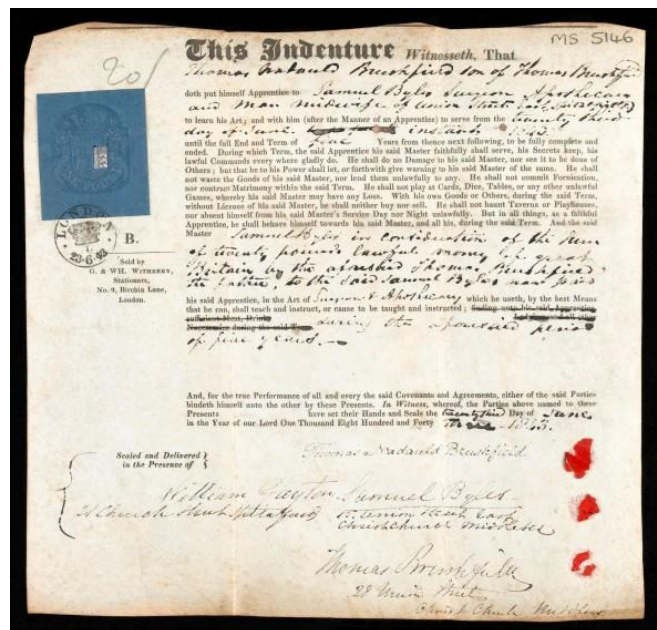 MS 5146
20/
This Indenture Witnesseth, That
Thomas Nadauld Brushfield son of Thomas Brushfield
doth put himself Apprentice to Samuel Byles Surgeon Apothecary
and Man midwife of Union Street East Spitalfields
to learn his Art; and with him (after the Manner of an Apprentice) to serve from the twenty third
day of June instant 1843
until the full End and Term of five Years from thence next following, to be fully complete and
ended. During which Term, the said Apprentice his said Master faithfully shall serve, his Secrets keep, his
lawful Commands every where gladly do. He shall do no Damage to his said Master, nor see it to be done of
Others; but that he to his Power shall let, or forthwith give warning to his said Master of the same. He shall
not waste the Goods of his said Master, nor lend them unlawfully to any. He shall not commit Fornication,
nor contract Matrimony within the said Term. He shall not play at Cards, Dice, Tables, or any other unlawful
Games, whereby his said Master may have any Loss. With his own Goods or Others, during the said Term,
without Licence of his said Master, he shall neither buy nor sell. He shall not haunt Taverns or Playhouses,
nor absent himself from his said Master's Service Day nor Night unlawfully. But in all things, as a faithful
Apprentice, he shall behave himself towards his said Master, and all his, during the said Term. And the said
Master Samuel Byles in consideration of the sum
of twenty pounds lawful money of great
Britain by the aforesaid Thomas Brushfield,
the father, to the said Samuel Byles now paid
his said Apprentice, in the Art of Surgeon & Apothecary which he useth, by the best Means
that he can, shall teach and instruct, or cause to be taught and instructed; finding unto his said Apprentice
sufficient Meat, Drink, And all other
Necessaries during the said Term during the aforesaid period
of five years.
And, for the true Performance of all and every the said Covenants and Agreements, either of the said Parties
bindeth himself unto the other by these Presents. In Witness, whereof, the Parties above named to these
Presents have set their Hands and Seals the twenty third Day of June
in the Year of our Lord One Thousand Eight Hundred and Forty three 1843.
LONDON
23-6-43
B.
Sold by
G. & WH. WITHERBY,
Stationers,
No. 9, Birchin Lane,
London.
Sealed and Delivered
in the Presence of
Thomas Nadauld Brushfield
William
Church Street Spitalfields
Samuel Byles
Union Street East
Christchurch Middlesex
Thomas Brushfield
28 Union Street
Christ Church Middlesex